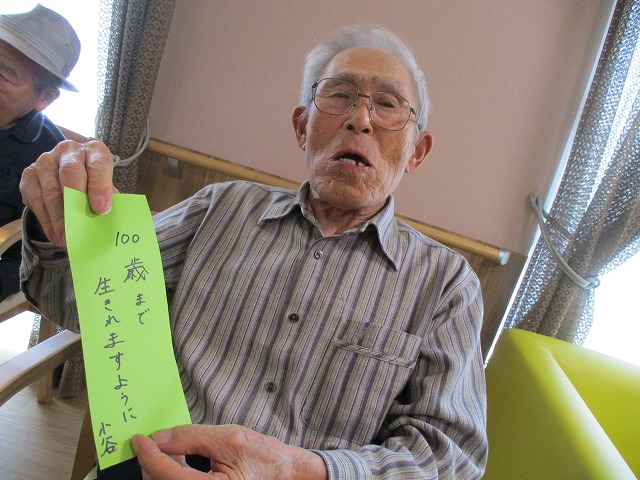 100歳まで
生きれますように
小谷